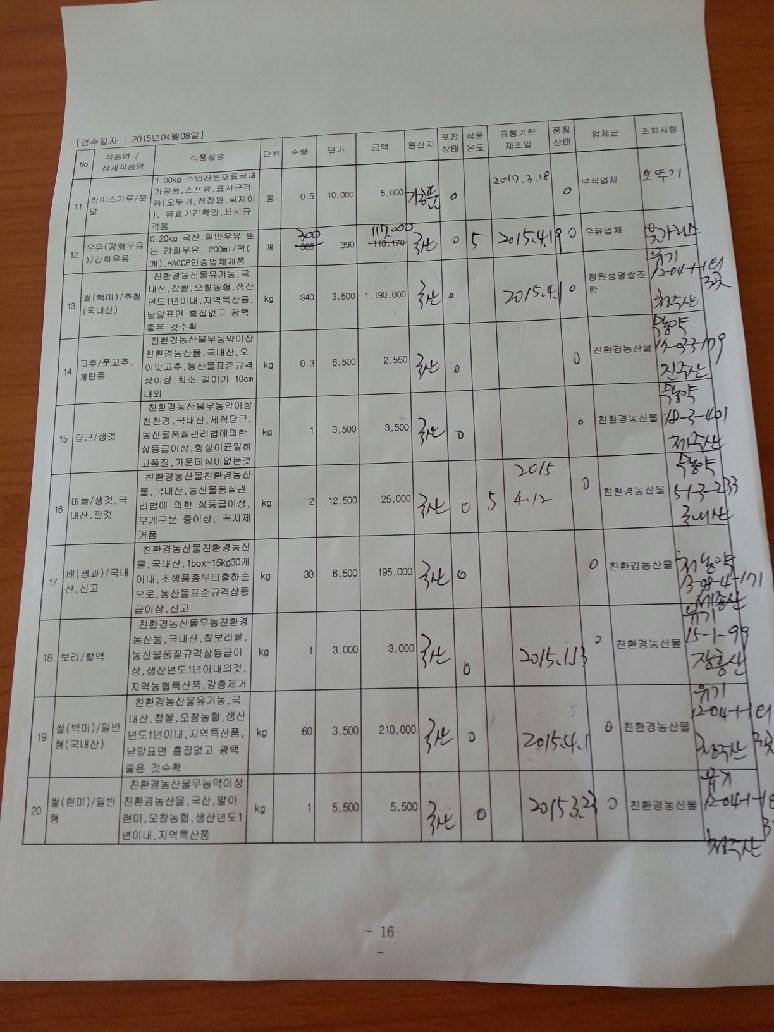 [검수일자 : 2015년04월08일]
No 식품명 / 상세식품명 식품설명 단위 수량 단가 금액 원산지 포장상태 식품온도 유통기한 제조일 품질상태 업체군 조치사항
11 하이스가루/분말 1.00kg 수입산원재료국내가공품,스프류,표시규격품(오뚜기,청정원,씨제이), 유효기간확인,표시규격품 봉 0.5 10,000 5,000 가공품 0 2017.3.18 0 부식업체 오뚜기
12 우유(강화우유)/강화우유 0.20kg 국산,일반우유 또는 강화우유, 200ml/팩(개),HACCP인증업체제품 개 300 390 117,000 국산 0 5 2015.4.19 0 우유업체
13 쌀(백미)/추청(국내산) 친환경농산물유기농,국내산,찹쌀,오창농협,생산년도1년이내,지역특산품,낱알표면 흠집없고 광택좋은 것수확 kg 340 3,500 1,190,000 국산 0 2015.4.1 0 청원생명쌀조합 유기 청주산
14 고추/풋고추,개량종 친환경농산물무농약이상 친환경농산물,국내산,오이맛고추,농산물표준규격상이상,최소 길이가 10cm내외 kg 0.3 8,500 2,550 국산 0 0 친환경농산물 무농약 15-033-179 진주산
15 당근/생것 친환경농산물무농약이상 친환경,국내산,세척당근,농산물품질관리법에의한 상등급이상,형상이균일하고품질,가운데심이없는것 kg 1 3,500 3,500 국산 0 0 친환경농산물 무농약 18-3-401 제주산
16 마늘/생것,국내산,깐것 친환경농산물친환경농산물,국내산,농산물품질관리법에 의한 상등급이상,무게구분 중이상, 꼭지제거품 kg 2 12,500 25,000 국산 0 5 2015 4.12 0 친환경농산물 무농약 51-3-233 국내산
17 배(생과)/국내산,신고 친환경농산물친환경농산물,국내산,1box-15kg30개이내,조생품종부터출하순으로,농산물표준규격상등급이상,신고 kg 30 6,500 195,000 국산 0 0 친환경농산물 저농약 13-08-4-171 세종산
18 보리/할맥 친환경농산물무농친환경농산물,국내산,찰보리쌀,농산물품질규격상등급이상,생산년도1년이내의것,지역농협특산품,강층제거 kg 1 3,000 3,000 국산 0 2015.1.13 0 친환경농산물 유기 15-1-99 장흥산
19 쌀(백미)/일반형(국내산) 친환경농산물유기농,국내산,찹쌀,오창농협,생산년도1년이내,지역특산품,낱알표면 흠집없고 광택좋은 것수확 kg 60 3,500 210,000 국산 0 2015.4.1 0 친환경농산물 유기 청주산
20 쌀(현미)/일반형 친환경농산물무농약이상 친환경농산물,국산,발아현미,오창농협,생산년도1년이내,지역특산품 kg 1 5,500 5,500 국산 0 2015.3.23 0 친환경농산물 유기 청주산
- 16 -